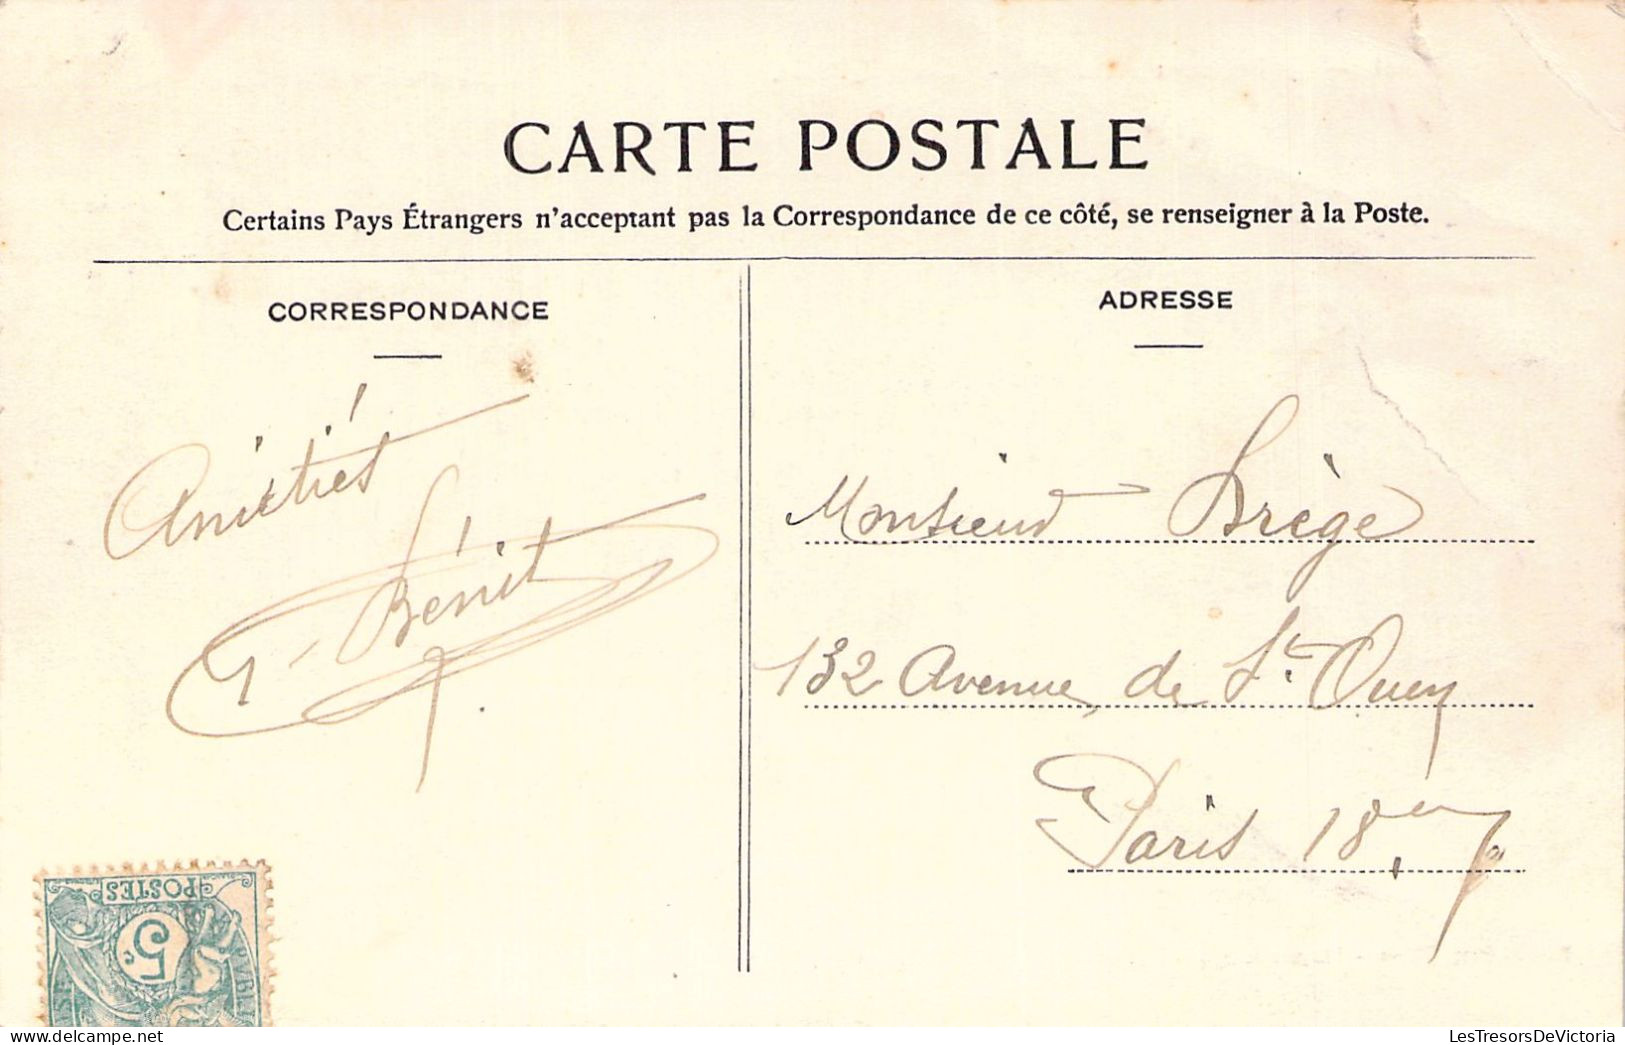 CARTE POSTALE
Certains Pays Étrangers n'acceptant pas la Correspondance de ce côté, se renseigner à la Poste.
CORRESPONDANCE
Amitiés
Bénit
ADRESSE
Monsieur Brège
132 Avenue de St. Ouen
Paris 18
POSTES
5c
LesTresorsDeVictoria